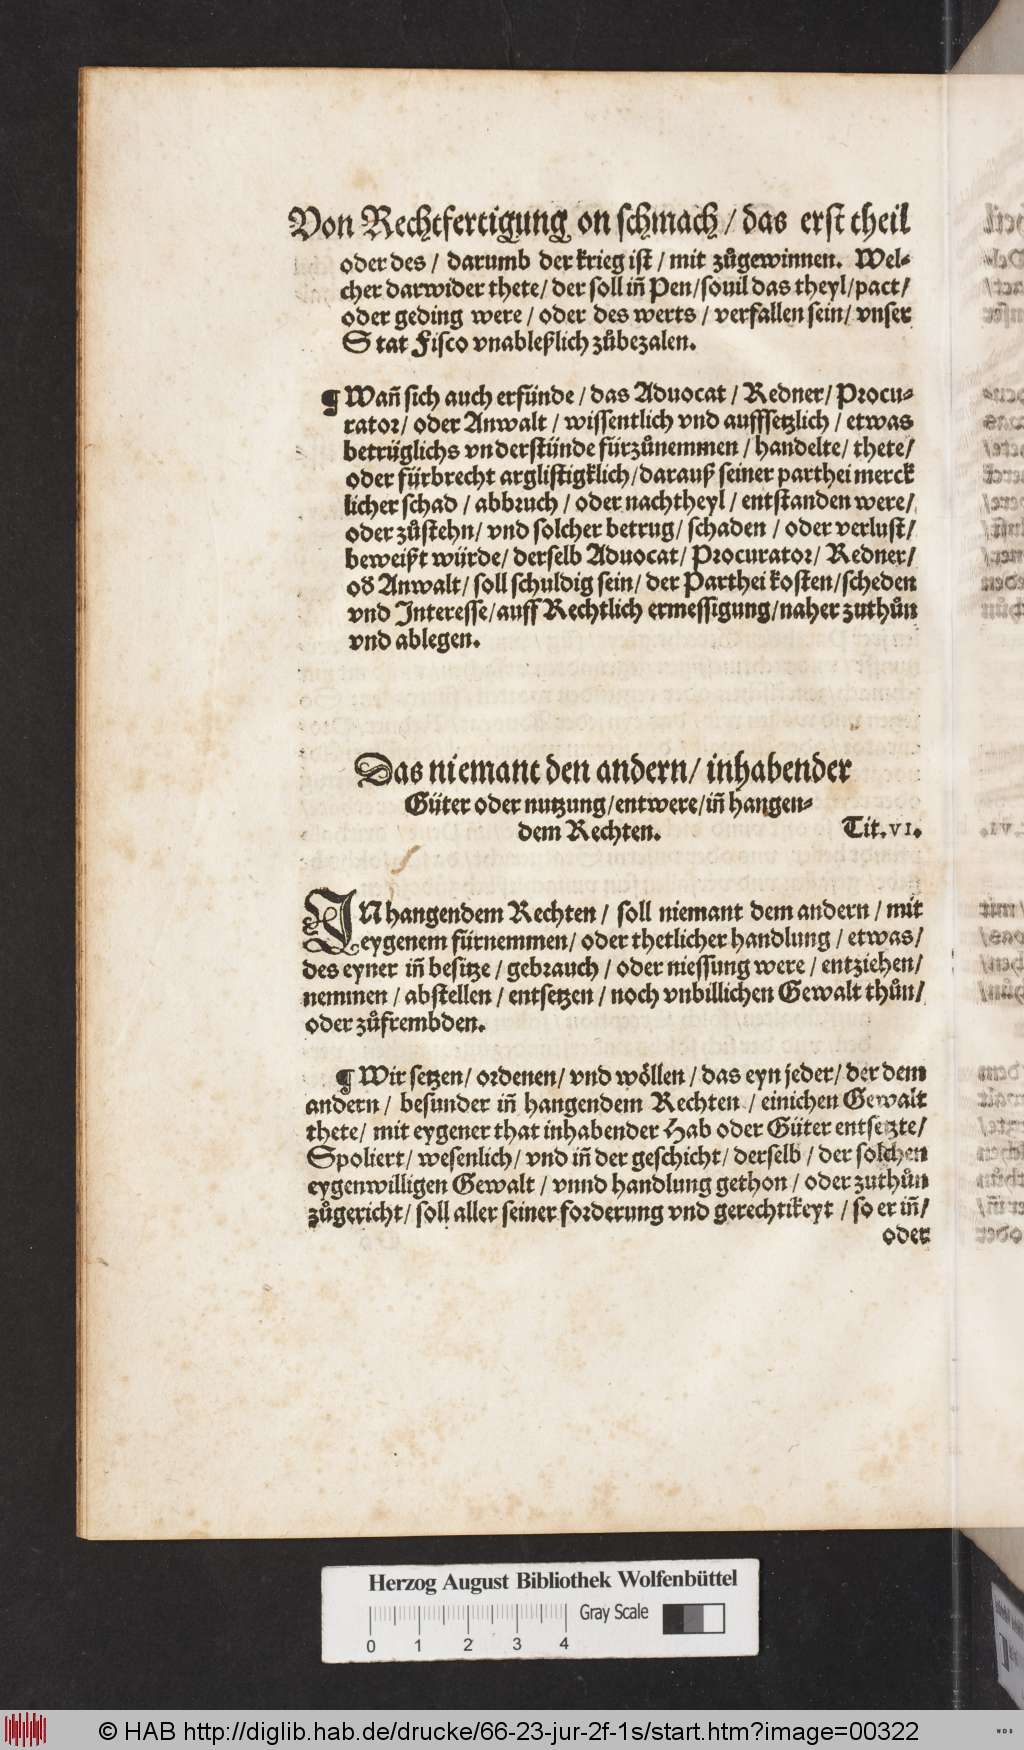 Von Rechtfertigung on schmach / das erst theil
oder des / darumb der krieg ist / mit zůgewinnen. Wel-
cher darwider thete / der soll iñ Pen / souil das theyl / pact /
oder geding were / oder des werts / verfallen sein / vnser
Stat Fisco vnableßlich zůbezalen.
¶ Wañ sich auch erfünde / das Aduocat / Redner / Procu-
rator / oder Anwalt / wissentlich vnd aufffsetzlich / etwas
betrüglichs vnderstünde fürzůnemmen / handelte / thete /
oder fürbrecht arglistigklich / darauß seiner parthei merck
licher schad / abbruch / oder nachtheyl / entstanden were /
oder zůstehn / vnd solcher betrug / schaden / oder verlust /
beweißt würde / derselb Aduocat / Procurator / Redner /
oð Anwalt / soll schuldig sein / der Parthei kosten / scheden
vnd Interesse / auff Rechtlich ermessigung / naher zuthůn
vnd ablegen.
Das niemant den andern / inhabender
Güter oder nutzung / entwere / iñ hangen-
dem Rechten. Tit. VI.
IN hangendem Rechten / soll niemant dem andern / mit
eygenem fürnemmen / oder thetlicher handlung / etwas /
des eyner iñ besitze / gebrauch / oder niessung were / entziehen /
nemmen / abstellen / entsetzen / noch vnbillichen Gewalt thůn /
oder zůfrembden.
¶ Wir setzen / ordenen / vnd wöllen / das eyn jeder / der dem
andern / besunder iñ hangendem Rechten / einichen Gewalt
thete / mit eygener that inhabender Hab oder Güter entsetzte /
Spoliert / wesenlich / vnd iñ der geschicht / derselb / der solchen
eygenwilligen Gewalt / vnnd handlung gethon / oder zuthůn
zůgericht / soll aller seiner forderung vnd gerechtikeyt / so er iñ /
oder
Herzog August Bibliothek Wolfenbüttel
Gray Scale
0 1 2 3 4
© HAB http://diglib.hab.de/drucke/66-23-jur-2f-1s/start.htm?image=00322